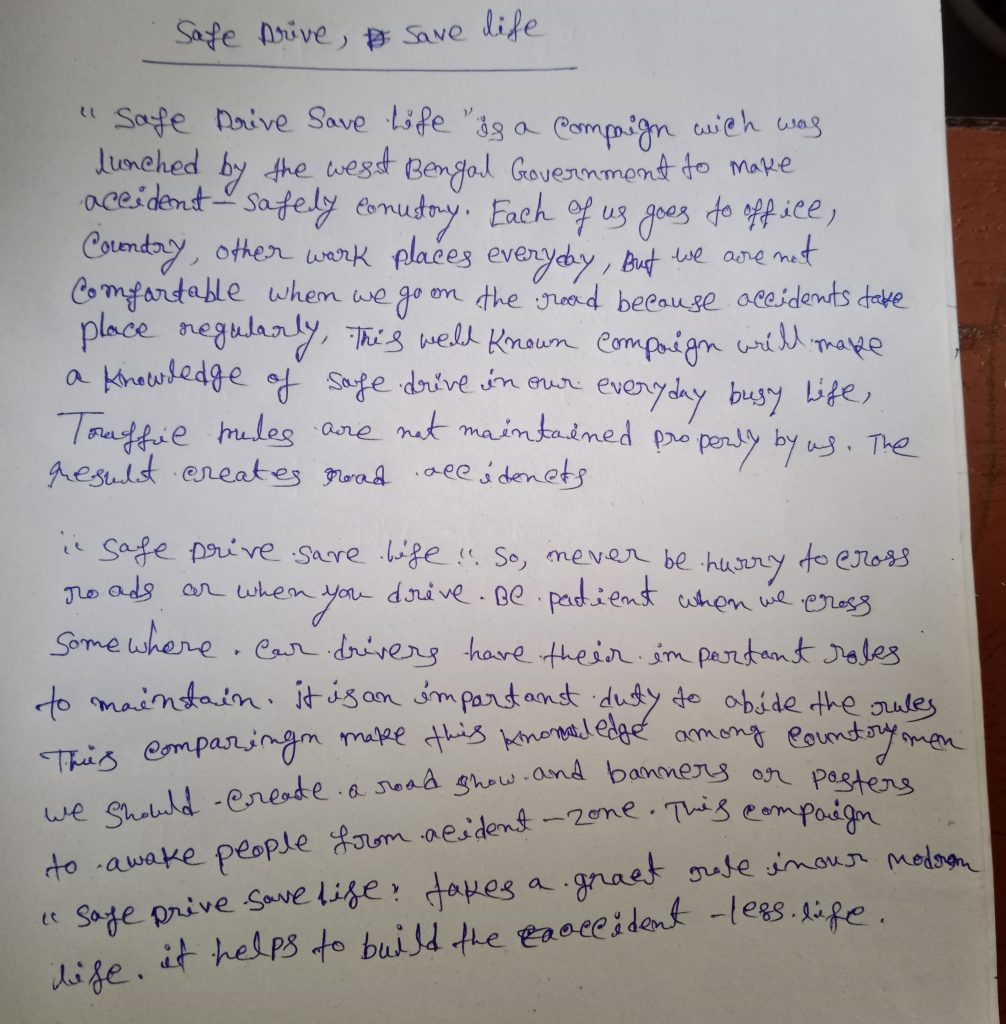 Safe Drive, Save life
"Safe Drive Save Life" is a Compaign wich was
lunched by the west Bengal Government to make
accident - Safely conutry. Each of us goes to office,
Country, other work places everyday, But we are not
Comfortable when we go on the road because accidents take
place regularly, This well known compaign will make
a knowledge of safe drive in our everyday busy life,
Traffic rules are not maintained properly by us. The
result creates road accidenets
"Safe Drive Save life". So, never be hurry to cross
roads or when you drive. Be patient when we cross
Somewhere. Car drivers have their important roles
to maintain. it is an important duty to abide the rules
This comparingn make this knowledge among countrymen
we should create a road show and banners or posters
to awake people from acident - zone. This compaign
"Safe Drive Save life" takes a graet role in our modern
life. it helps to build the accident - less life.